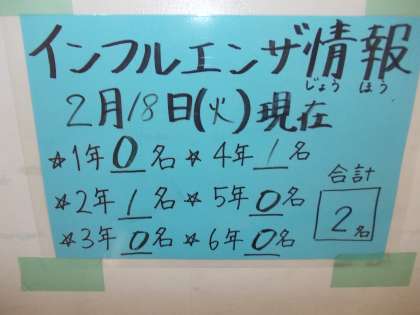 インフルエンザ情報
じょう ほう
2月18日(火)現在
☆1年 0名 ☆4年 1名
☆2年 1名 ☆5年 0名
☆3年 0名 ☆6年 0名
合計
2名